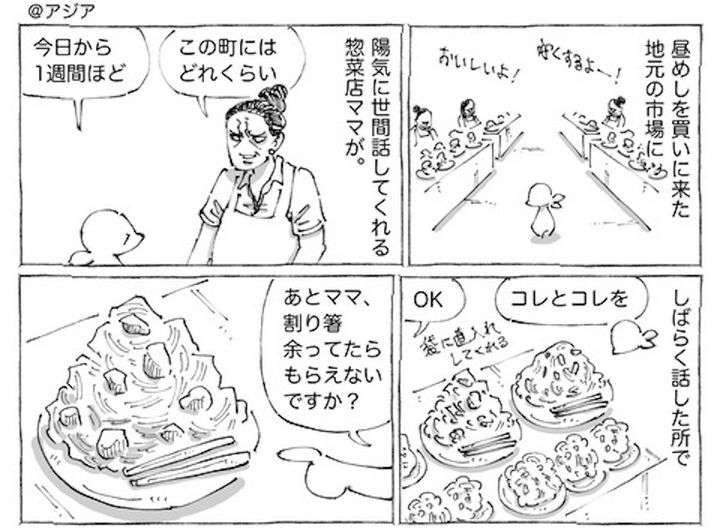 @アジア
昼めしを買いに来た
地元の市場に
おいしいよ！
安くするよー！
陽気に世間話してくれる
惣菜店ママが。
この町には
どれくらい
今日から
1週間ほど
しばらく話した所で
コレとコレを
OK
袋に直入れ
してくれる
あとママ、
割り箸
余ってたら
もらえない
ですか？